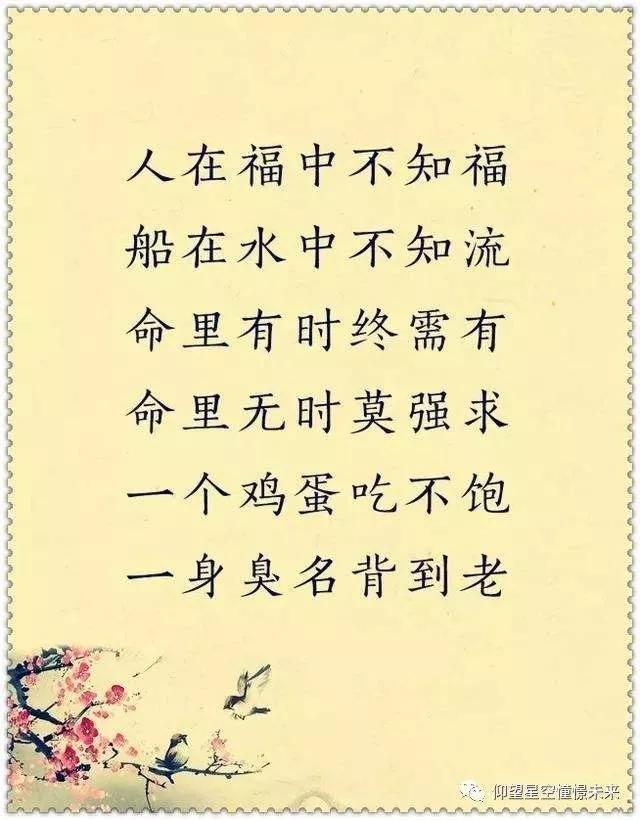 人在福中不知福
船在水中不知流
命里有时终需有
命里无时莫强求
一个鸡蛋吃不饱
一身臭名背到老
仰望星空憧憬未来